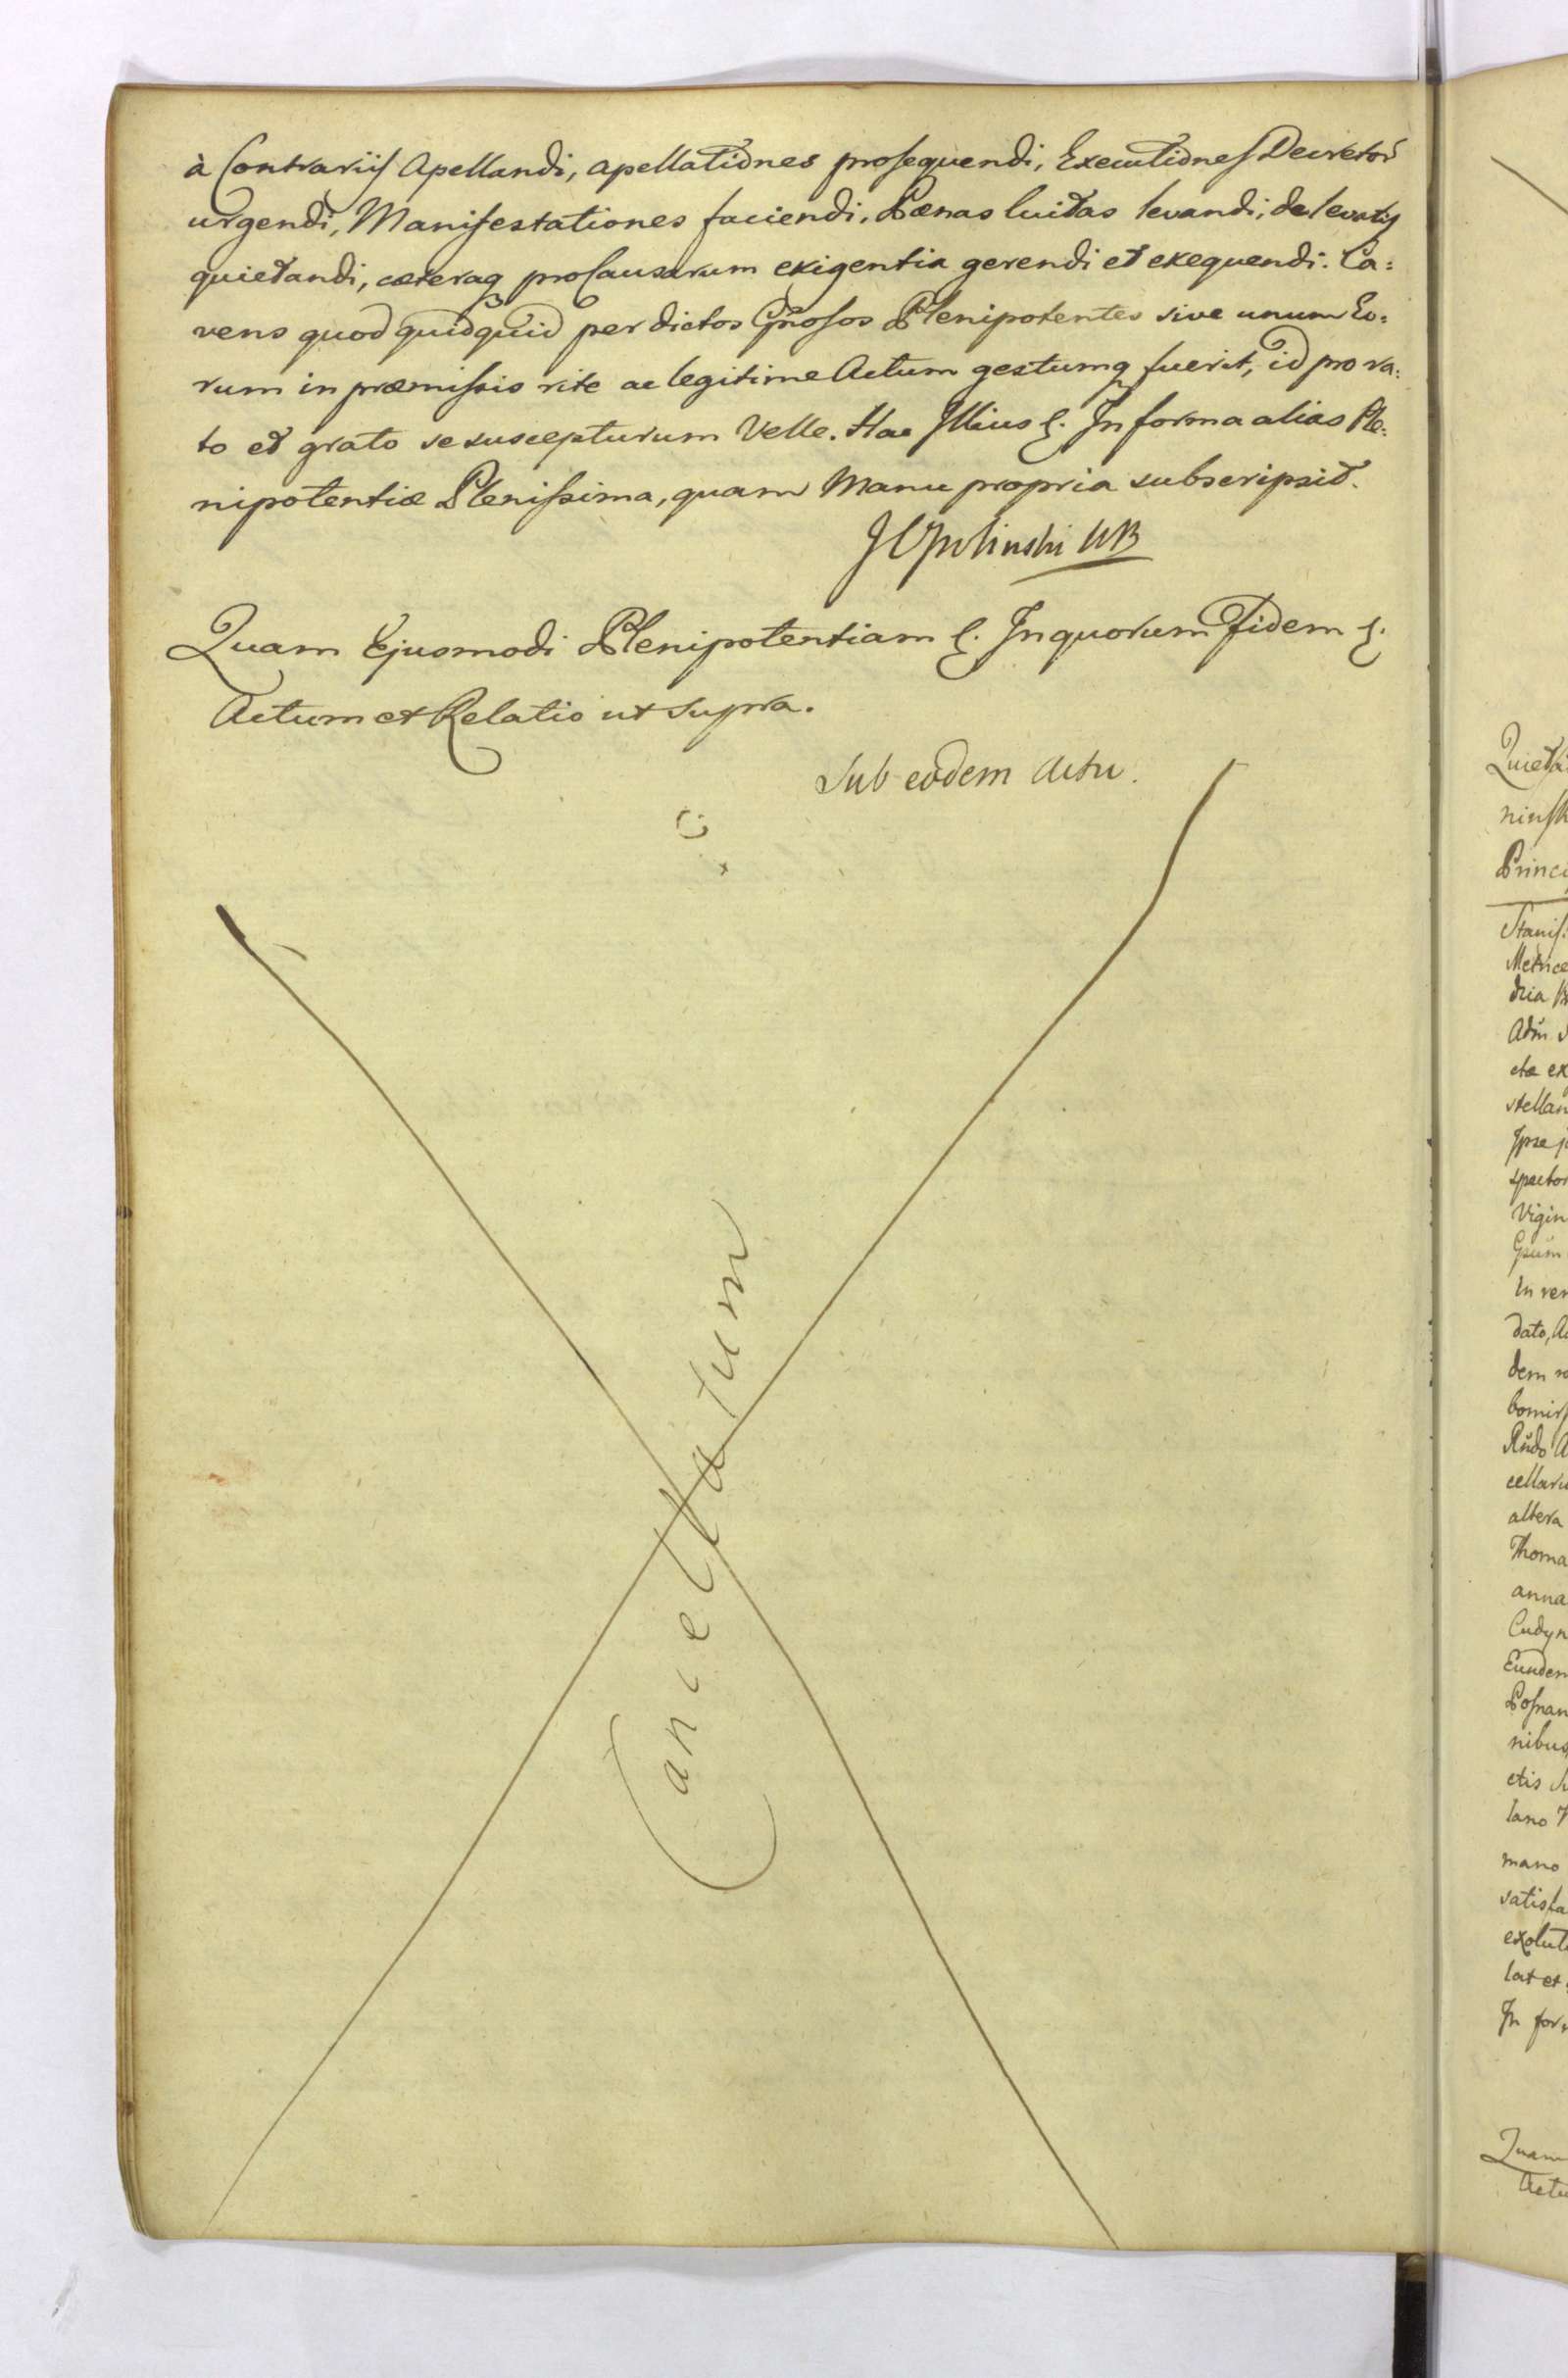 à Contrariis Apellandi, apellationes prosequendi, Executiones Decretor
urgendi, Manifestationes faciendi, Pænas luitas levandi, de levatis
quietandi, cæteraq pro Causarum exigentia gerendi et exequendi. Ca:
vens quod quidquid per dictos Gnosos Plenipotentes sive unum Eo:
rum in præmissis rite ac legitime Actum gestumq fuerit, id pro ra:
to et grato se suscepturum Velle. Hac Illius &. In forma alias Ple:
nipotentiæ Plenissima, quam Manu propria subscripsit.
J Opolinski
Quam Ejusmodi Plenipotentiam &. In quorum Fidem &.
Actum et Relatio ut supra.
Sub eodem Actu.
Cancellatum
Quieta
ninsk
Princi
Stanis.
Metrice
dria
Adm
ctæ ex
stellan
Ipse
spector
Vigin
In rer
dato, A
dem
bomirs
Rndo A
cellari
altera
Thoma
anna
Cudyn
Eundem
Posnan
nibus
ctis
lano
mano
satisfa
exolut
lat et
In for
Quam
Actu